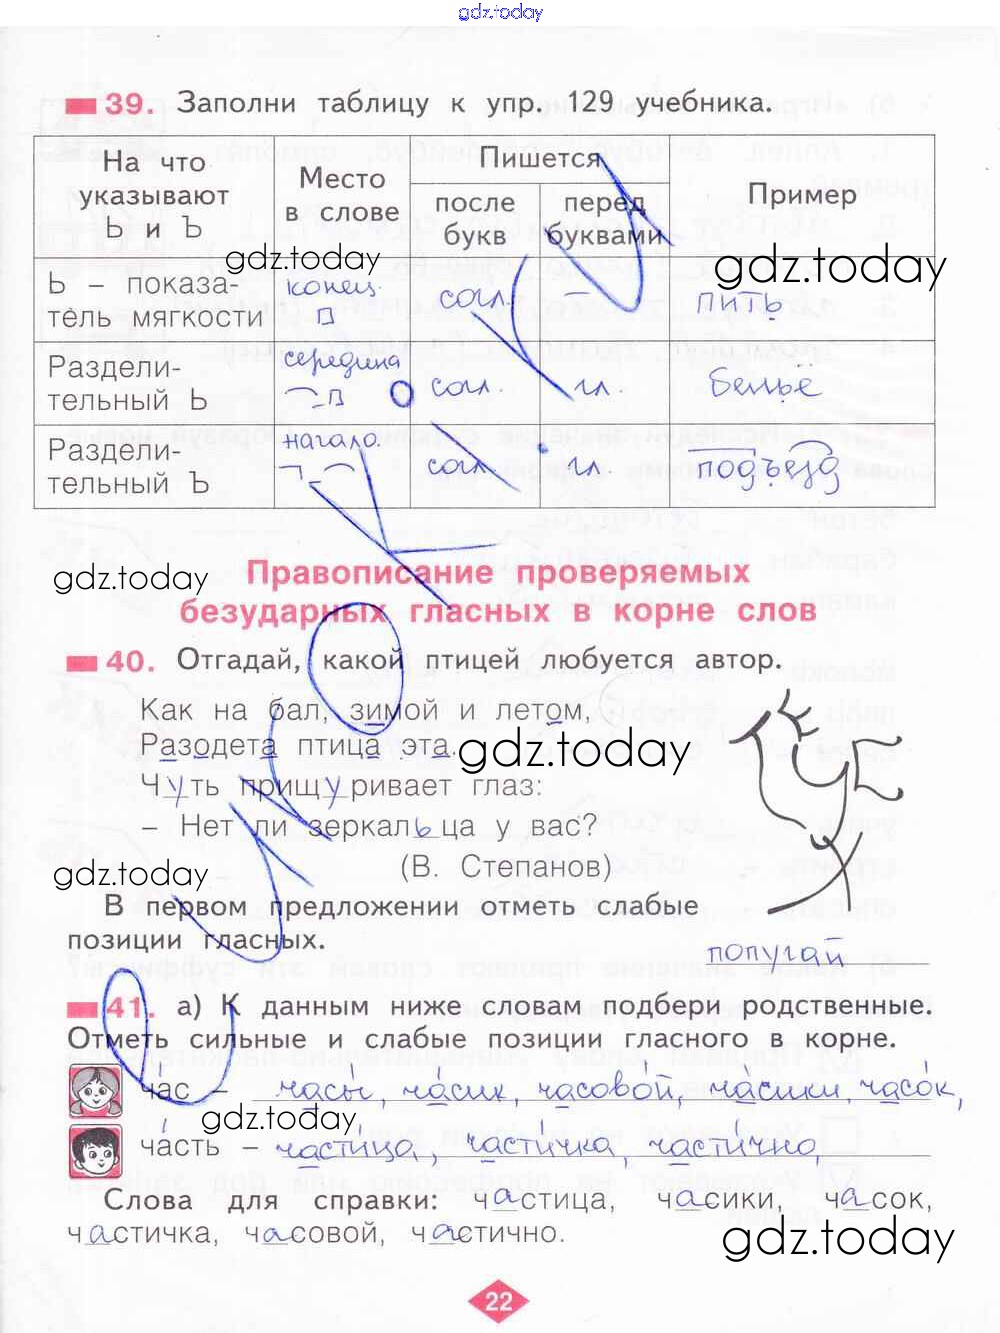 gdz.today
39. Заполни таблицу к упр. 129 учебника.
На что указывают Ь и Ъ
Место в слове
Пишется
после букв
перед буквами
Пример
gdz.today
gdz.today
Ь – показатель мягкости
конец
согл.
–
пить
Разделительный Ь
середина
согл.
гл.
бельё
Разделительный Ъ
начало
согл.
гл.
подъезд
gdz.today
Правописание проверяемых
безударных гласных в корне слов
40. Отгадай, какой птицей любуется автор.
Как на бал, зимой и летом,
Разодета птица эта.
gdz.today
Чуть прищуривает глаз:
– Нет ли зеркальца у вас?
(В. Степанов)
gdz.today
В первом предложении отметь слабые
позиции гласных.
попугай
41. а) К данным ниже словам подбери родственные.
Отметь сильные и слабые позиции гласного в корне.
ча́с – часы́, ча́сик, часово́й, ча́сики, часо́к,
gdz.today
ча́сть – части́ца, части́чка, части́чно
Слова для справки: частица, часики, часок,
частичка, часовой, частично.
gdz.today
22